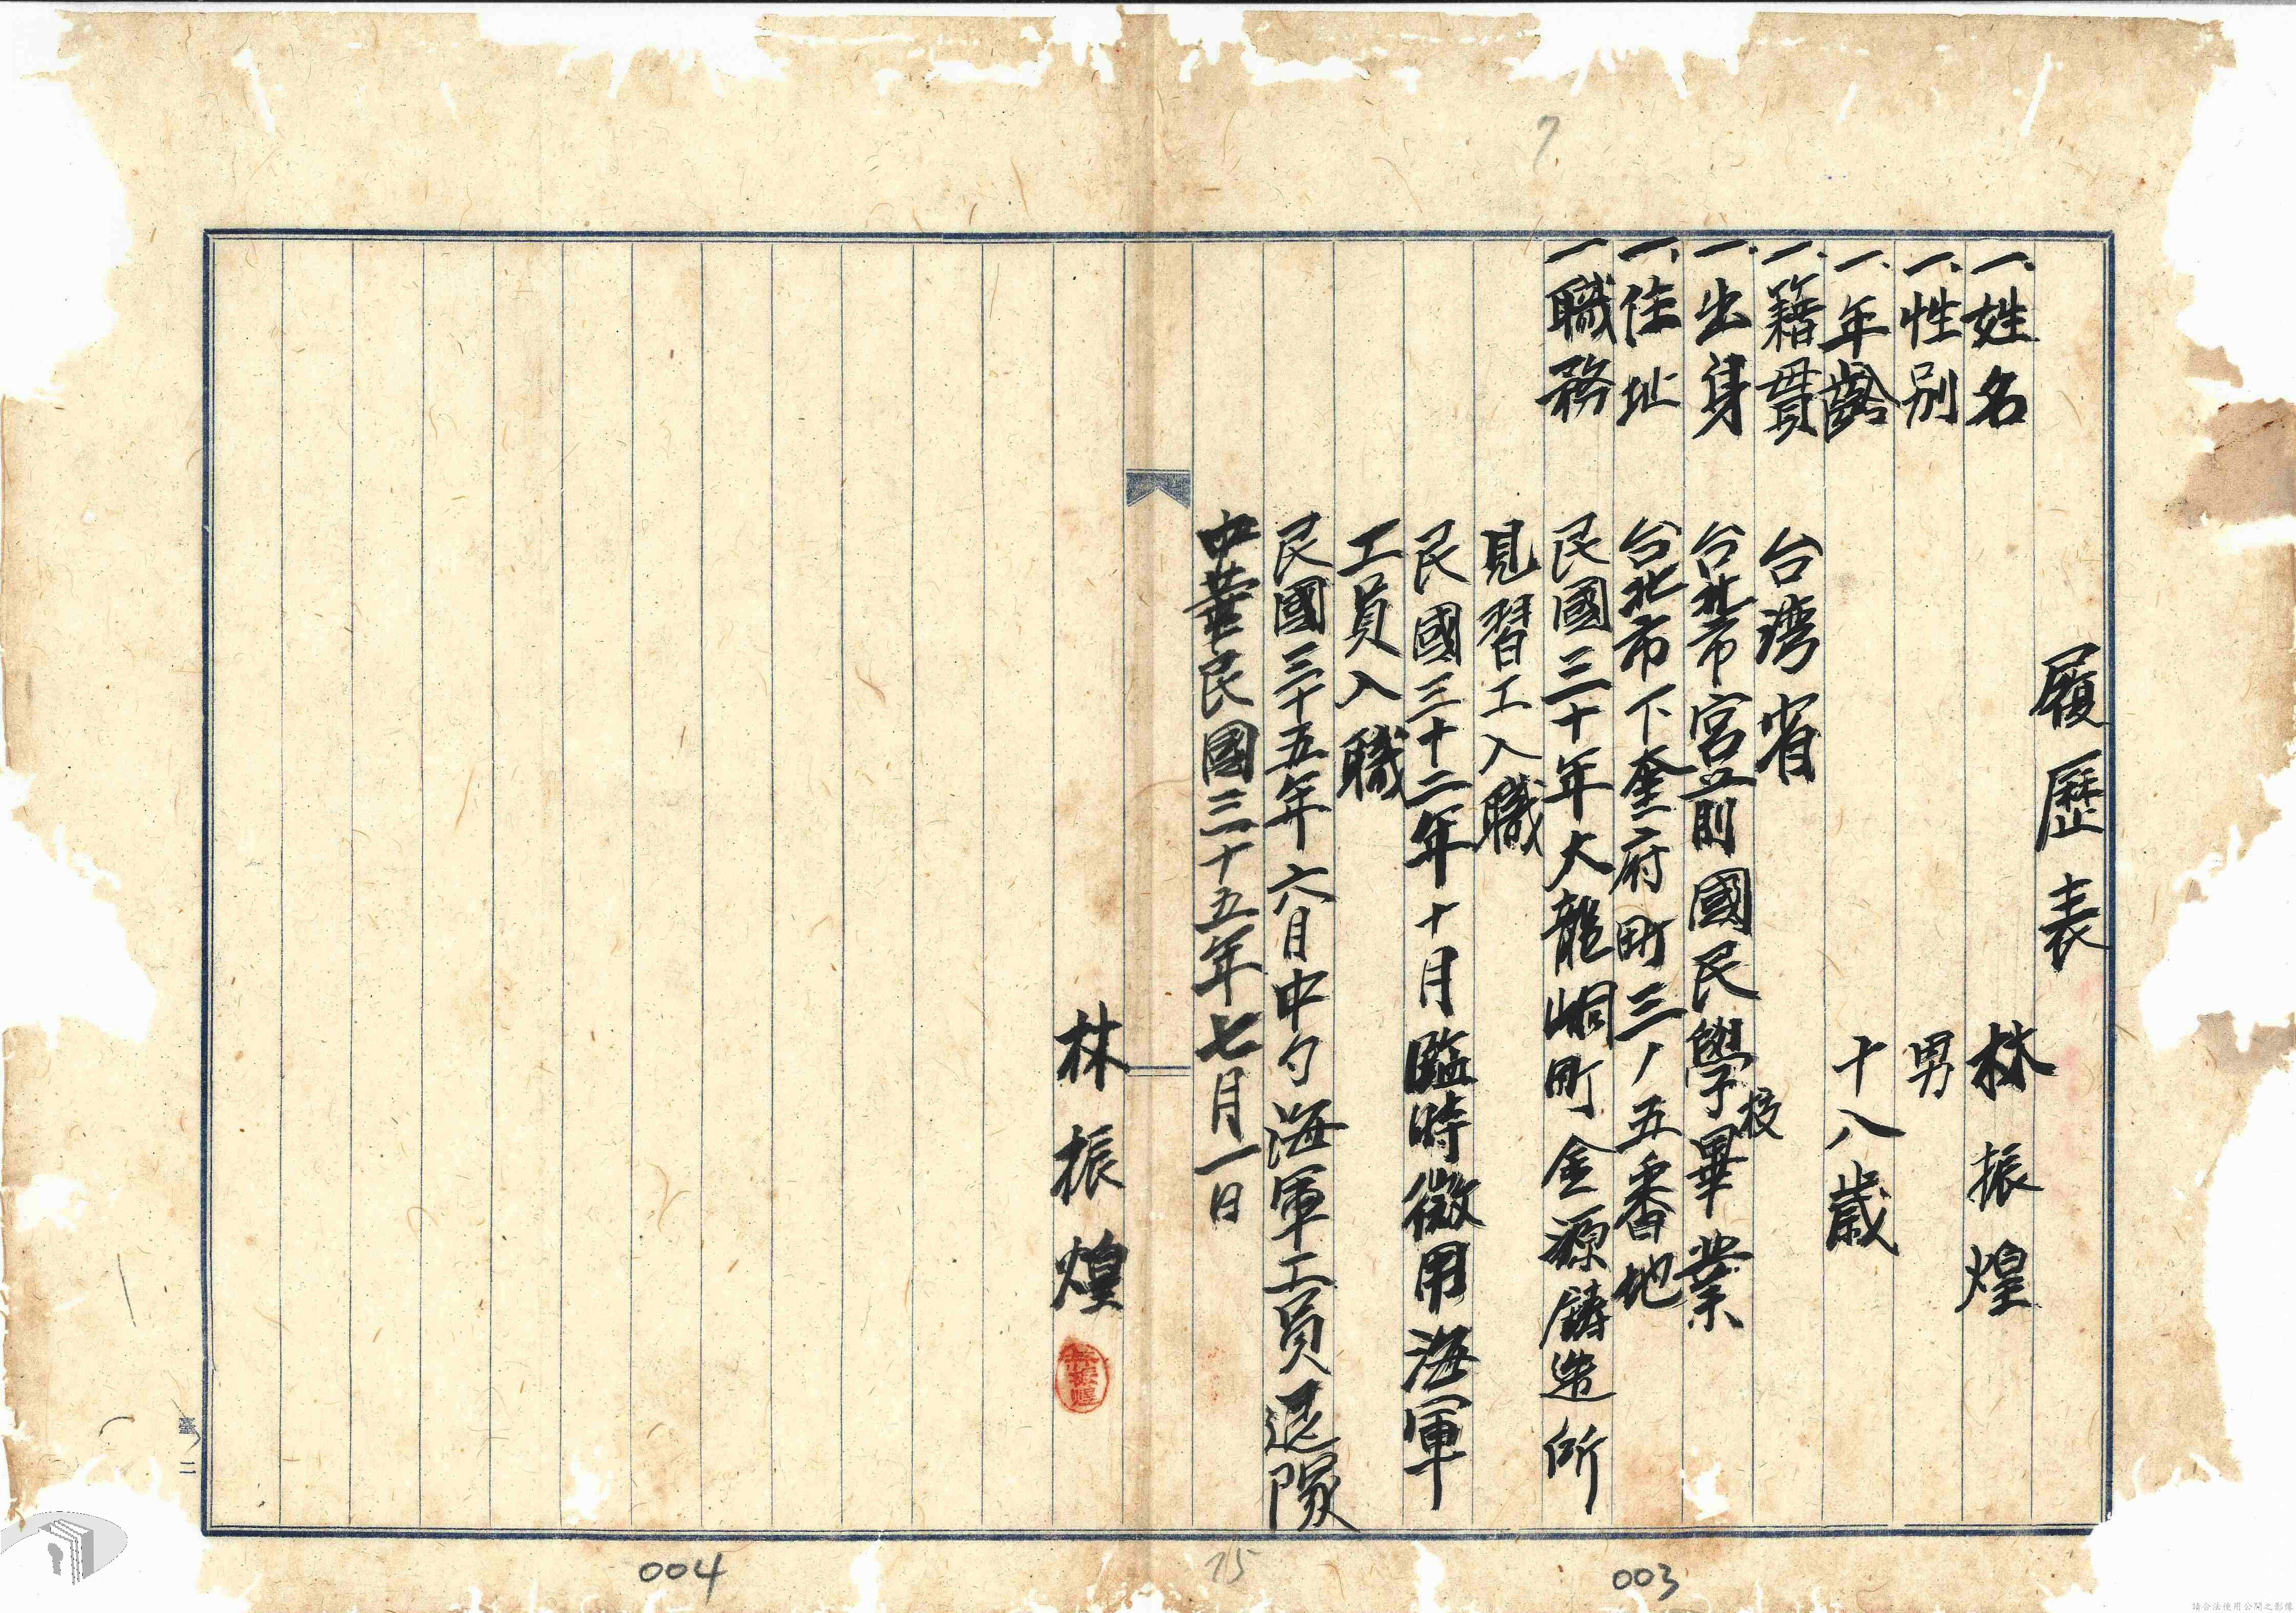 履歷表
一、姓名 林振煌
一、性別 男
一、年齡 十八歲
一、籍貫 台湾省
一、出身 台北市宮前國民學校畢業
一、住址 台北市下奎府町三ノ五番地
一職務 民國三十年大龍峒町金源鑄造所
見習工入職
民國三十二年十月臨時徵用海軍
工員入職
民國三十五年六月中旬海軍工員退隊
中華民國三十五年七月一日
林振煌
林振煌
7
15
003
004
請合法使用公開之影像